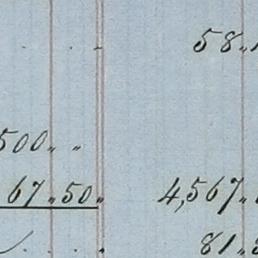 58
500 〃 〃
67 〃 50 〃 4,567 〃
81 〃